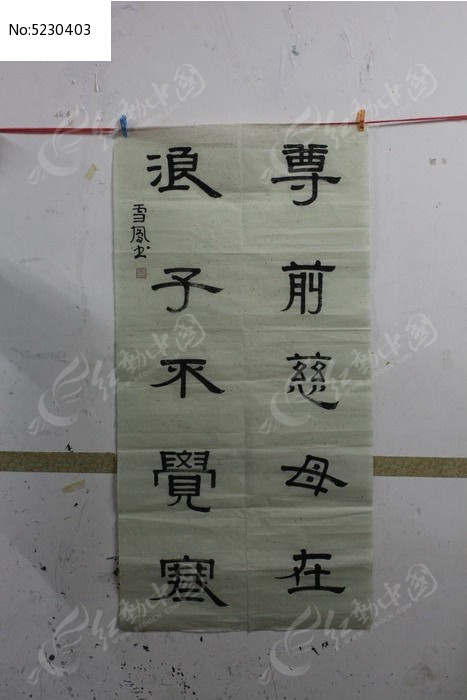 No:5230403
尊前慈母在
浪子不覺寒
雪鳳书
红動中国